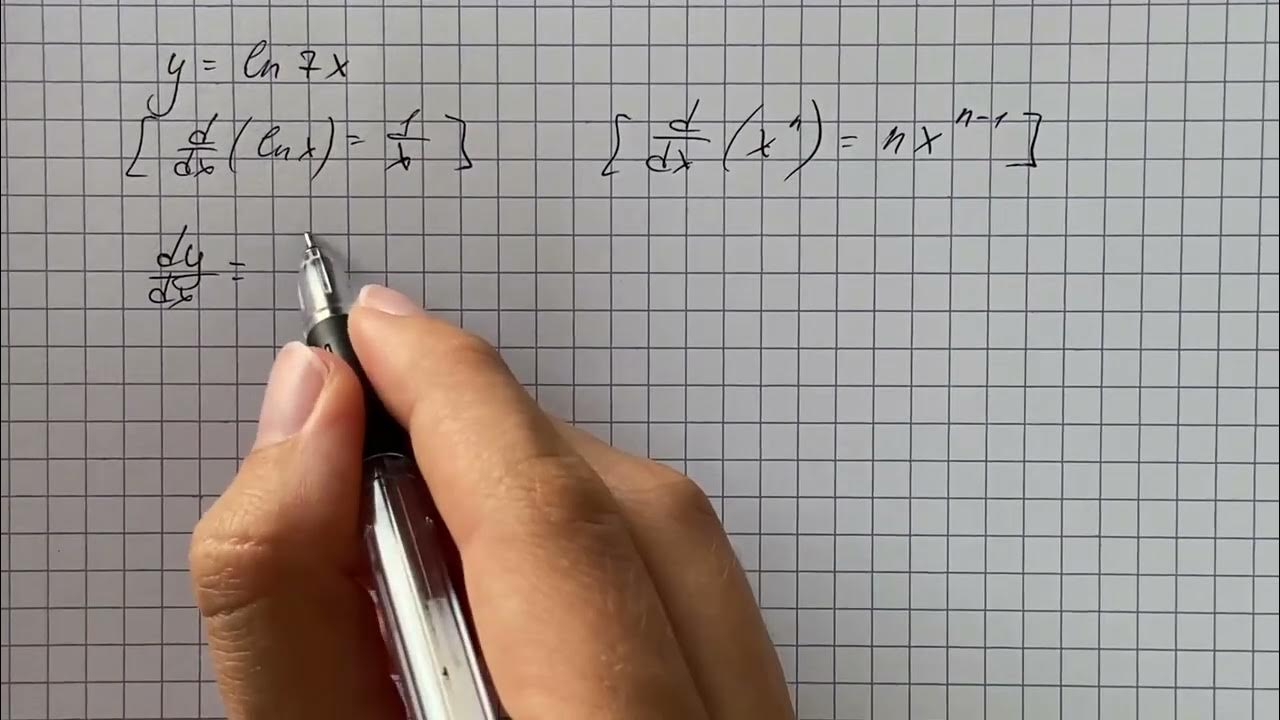 y = ln 7x
[ d/dx (ln x) = 1/x ] [ d/dx (xⁿ) = n xⁿ⁻¹ ]
dy/dx =